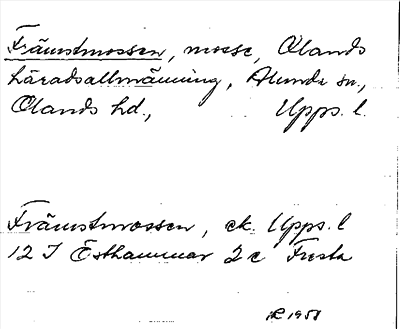 Främstmossen, mosse, Ölands
häradsallmänning, Alunda sn.,
Ölands hd., Upps. l.
Främstmossen, ek. Upps. l
12 I Östhammar 2 c Fresta
1958